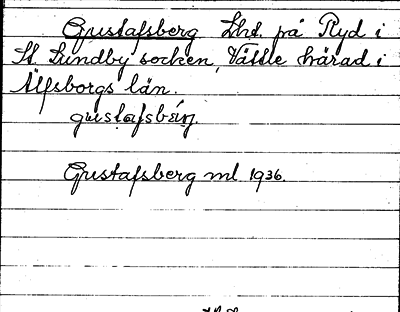 Gustafsberg Lht. på Ryd i
St. Lundby socken, Vättle härad i
Älfsborgs län.
gustafsbärj.
Gustafsberg ml 1936.